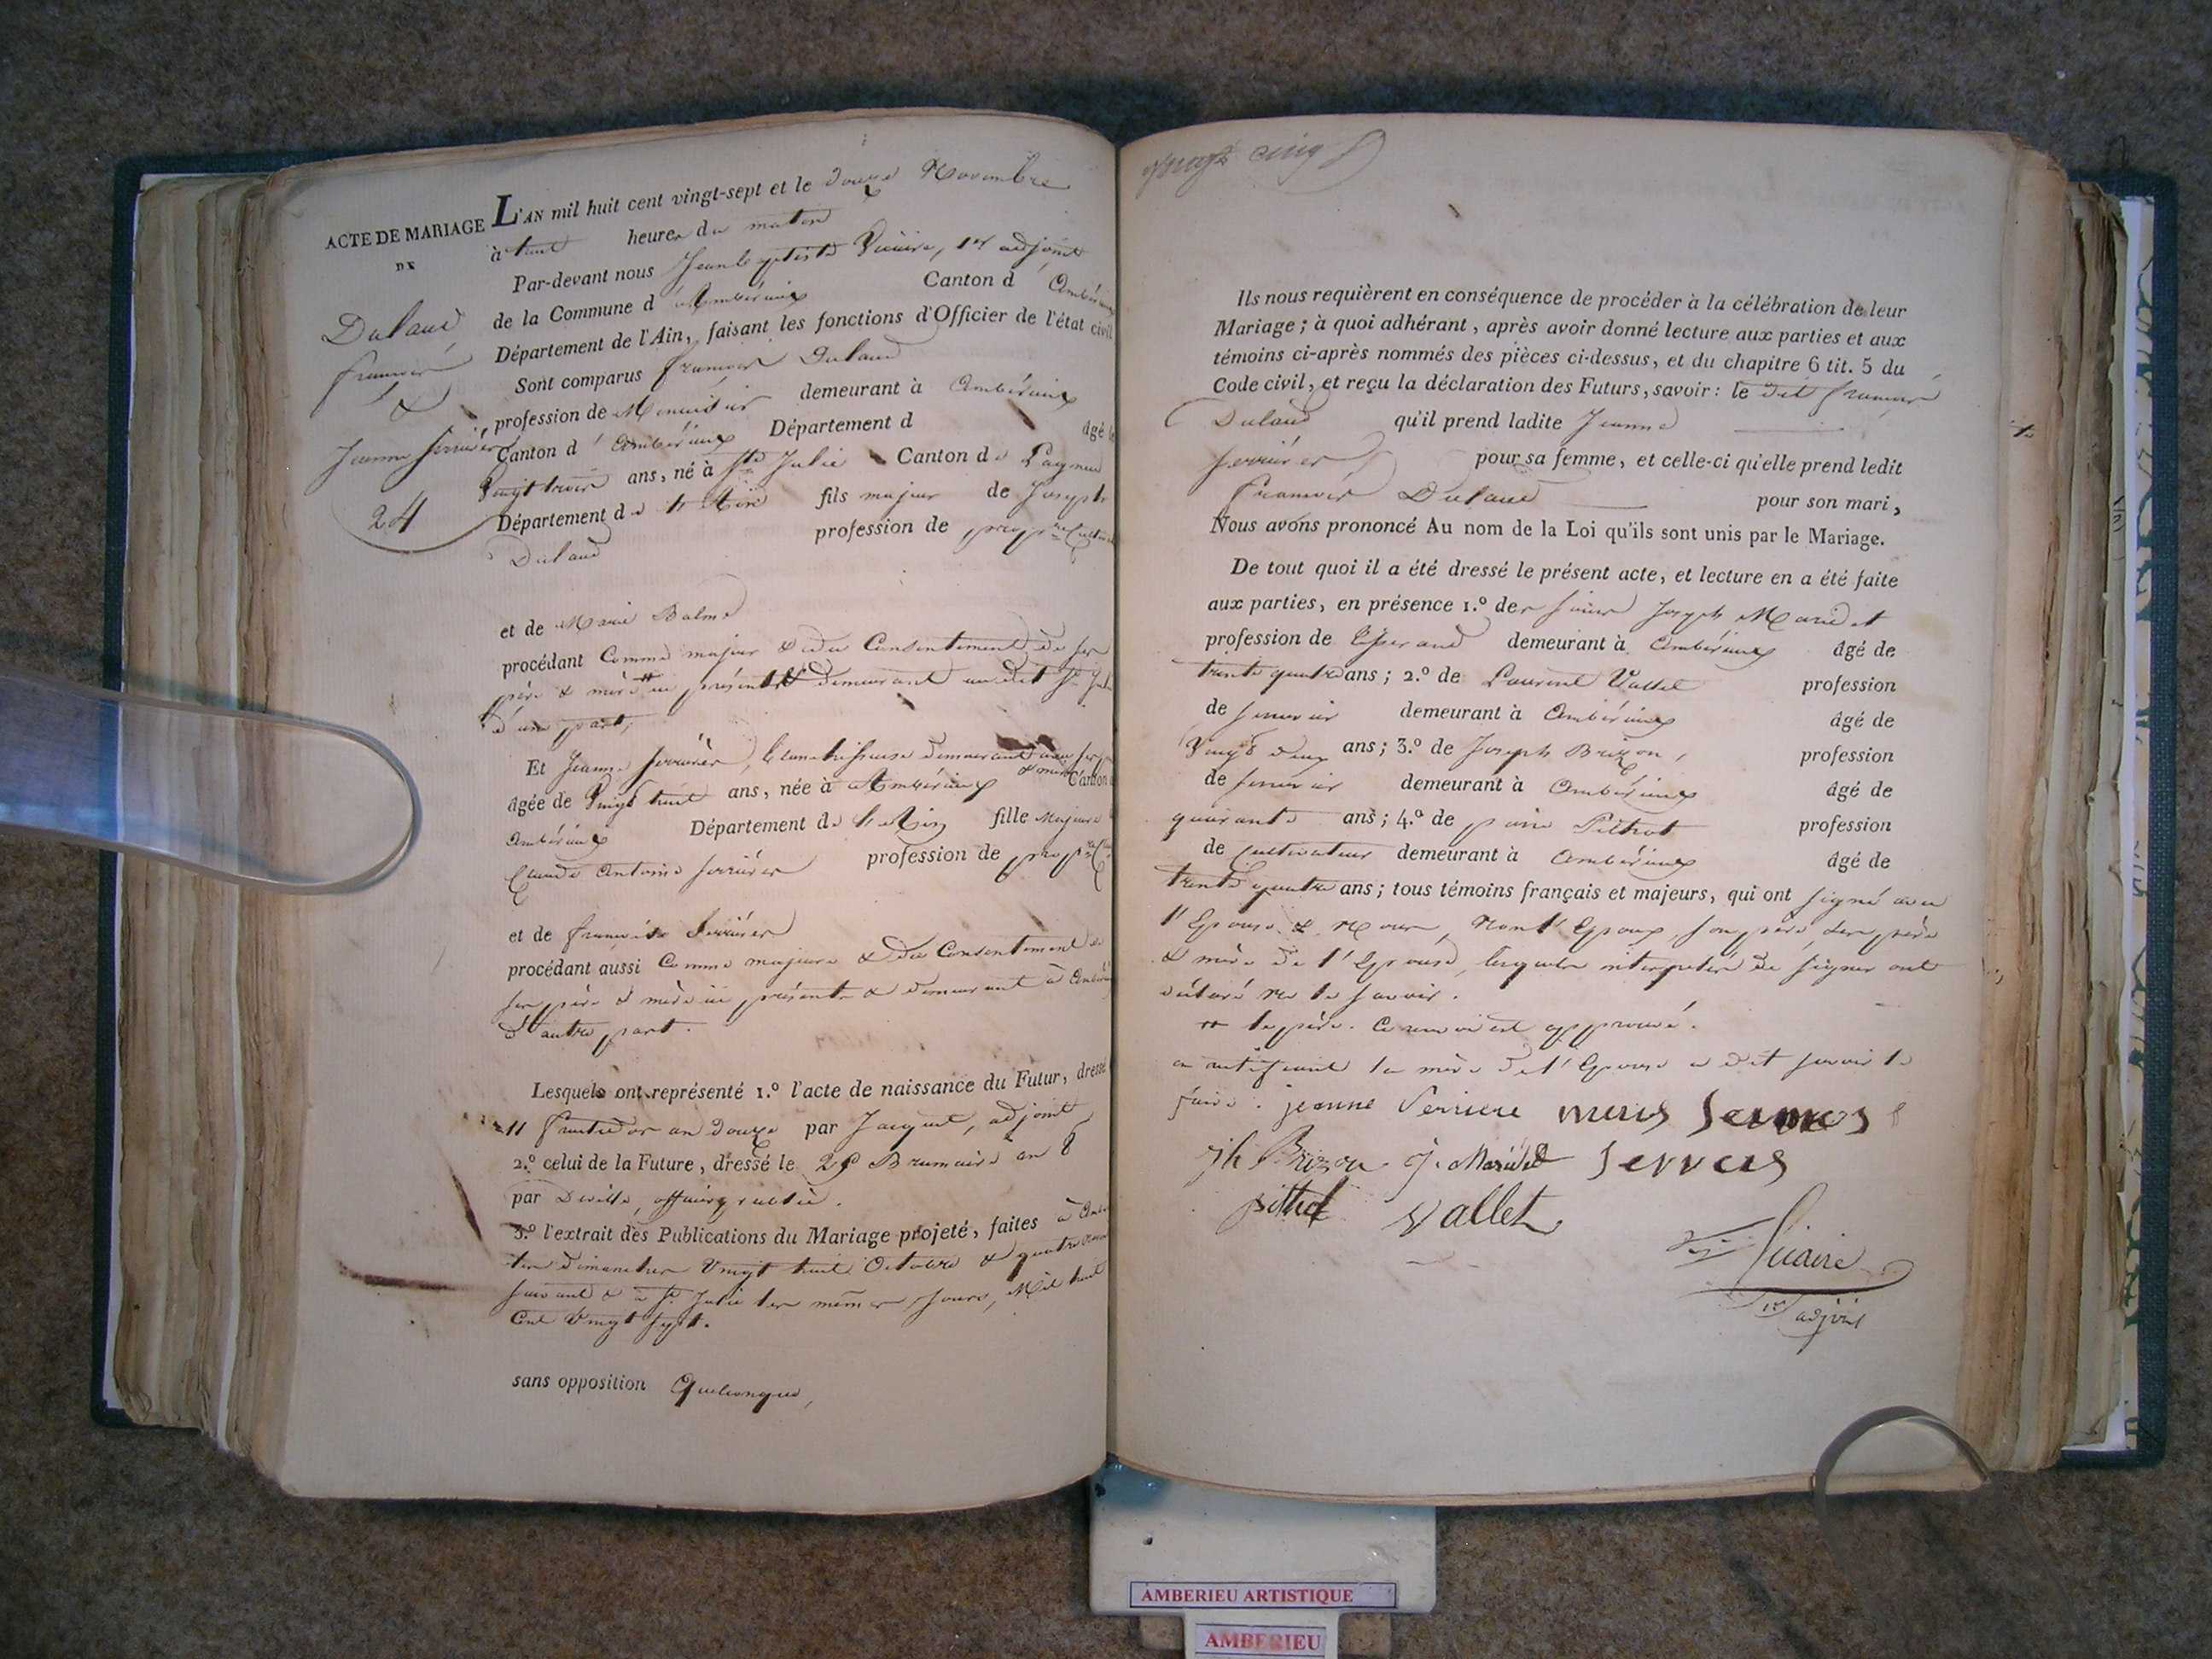 ACTE DE MARIAGE
DE
Dulaud
françois
&
Jeanne ferrier
24
L'AN mil huit cent vingt-sept et le douze Novembre
à huit heures du matin
Par-devant nous Jean baptiste Vicaire, 1er adjoint
de la Commune d'Ambérieux Canton d'Ambérieux
Département de l'Ain, faisant les fonctions d'Officier de l'état civil
Sont comparus françois Dulaud
profession de Menuisier demeurant à Ambérieux
Canton d'Ambérieux Département d âgé de
Vingt trois ans, né à Ste Julie Canton de Lagnieu
Département de l'Ain fils majeur de Joseph
Dulaud profession de propre Cultiv
et de Marie Balme
procédant Comme majeur & du Consentement de ses
père & mère ici présents & demeurant au dit Ste Julie
d'une part,
Et Jeanne ferrier, demeurant avec ses
âgée de Vingt huit ans, née à Ambérieux Canton
Ambérieux Département de l'Ain fille Majeure
Claude Antoine ferrier profession de propre
et de françoise ferrier
procédant aussi Comme majeure & du Consentement de
ses père & mère ici présents & demeurant à Ambérieux
d'autre part.
Lesquels ont représenté 1.º l'acte de naissance du Futur, dressé
11 fructidor an douze par Jacquet, adjoint
2.º celui de la Future, dressé le 28 Brumaire an 8
par Deville, officier public.
3.º l'extrait des Publications du Mariage projeté, faites à
les dimanches Vingt huit Octobre & quatre
suivant & à Ste Julie les mêmes jours, Mil huit
Cent Vingt sept.
sans opposition Quelconque,
vingt cinq
Ils nous requièrent en conséquence de procéder à la célébration de leur
Mariage ; à quoi adhérant, après avoir donné lecture aux parties et aux
témoins ci-après nommés des pièces ci-dessus, et du chapitre 6 tit. 5 du
Code civil, et reçu la déclaration des Futurs, savoir : le dit françois
Dulaud qu'il prend ladite Jeanne
ferrier pour sa femme, et celle-ci qu'elle prend ledit
françois Dulaud pour son mari,
Nous avons prononcé Au nom de la Loi qu'ils sont unis par le Mariage.
De tout quoi il a été dressé le présent acte, et lecture en a été faite
aux parties, en présence 1.º des sieurs Joseph Mariet
profession de demeurant à Ambérieux âgé de
trente quatre ans ; 2.º de Laurent Vallet profession
de serrurier demeurant à Ambérieux âgé de
Vingt deux ans ; 3.º de Joseph Brizon, profession
de serrurier demeurant à Ambérieux âgé de
quarante ans ; 4.º de profession
de Cultivateur demeurant à Ambérieux âgé de
trente quatre ans ; tous témoins français et majeurs, qui ont signé avec
l'Epouse & Nous, Non l'Epoux, son père, les père
& mère de l'Epouse, lesquels interpellés de signer ont
déclaré ne le savoir.
le père. Ce renvoi est approuvé.
en rectifiant la mère de l'Epouse a dit savoir le
faire. jeanne ferriere
jh Brizon J. Mariet
pithol Vallet
Vicaire
1er adjoint
AMBERIEU ARTISTIQUE
AMBERIEU